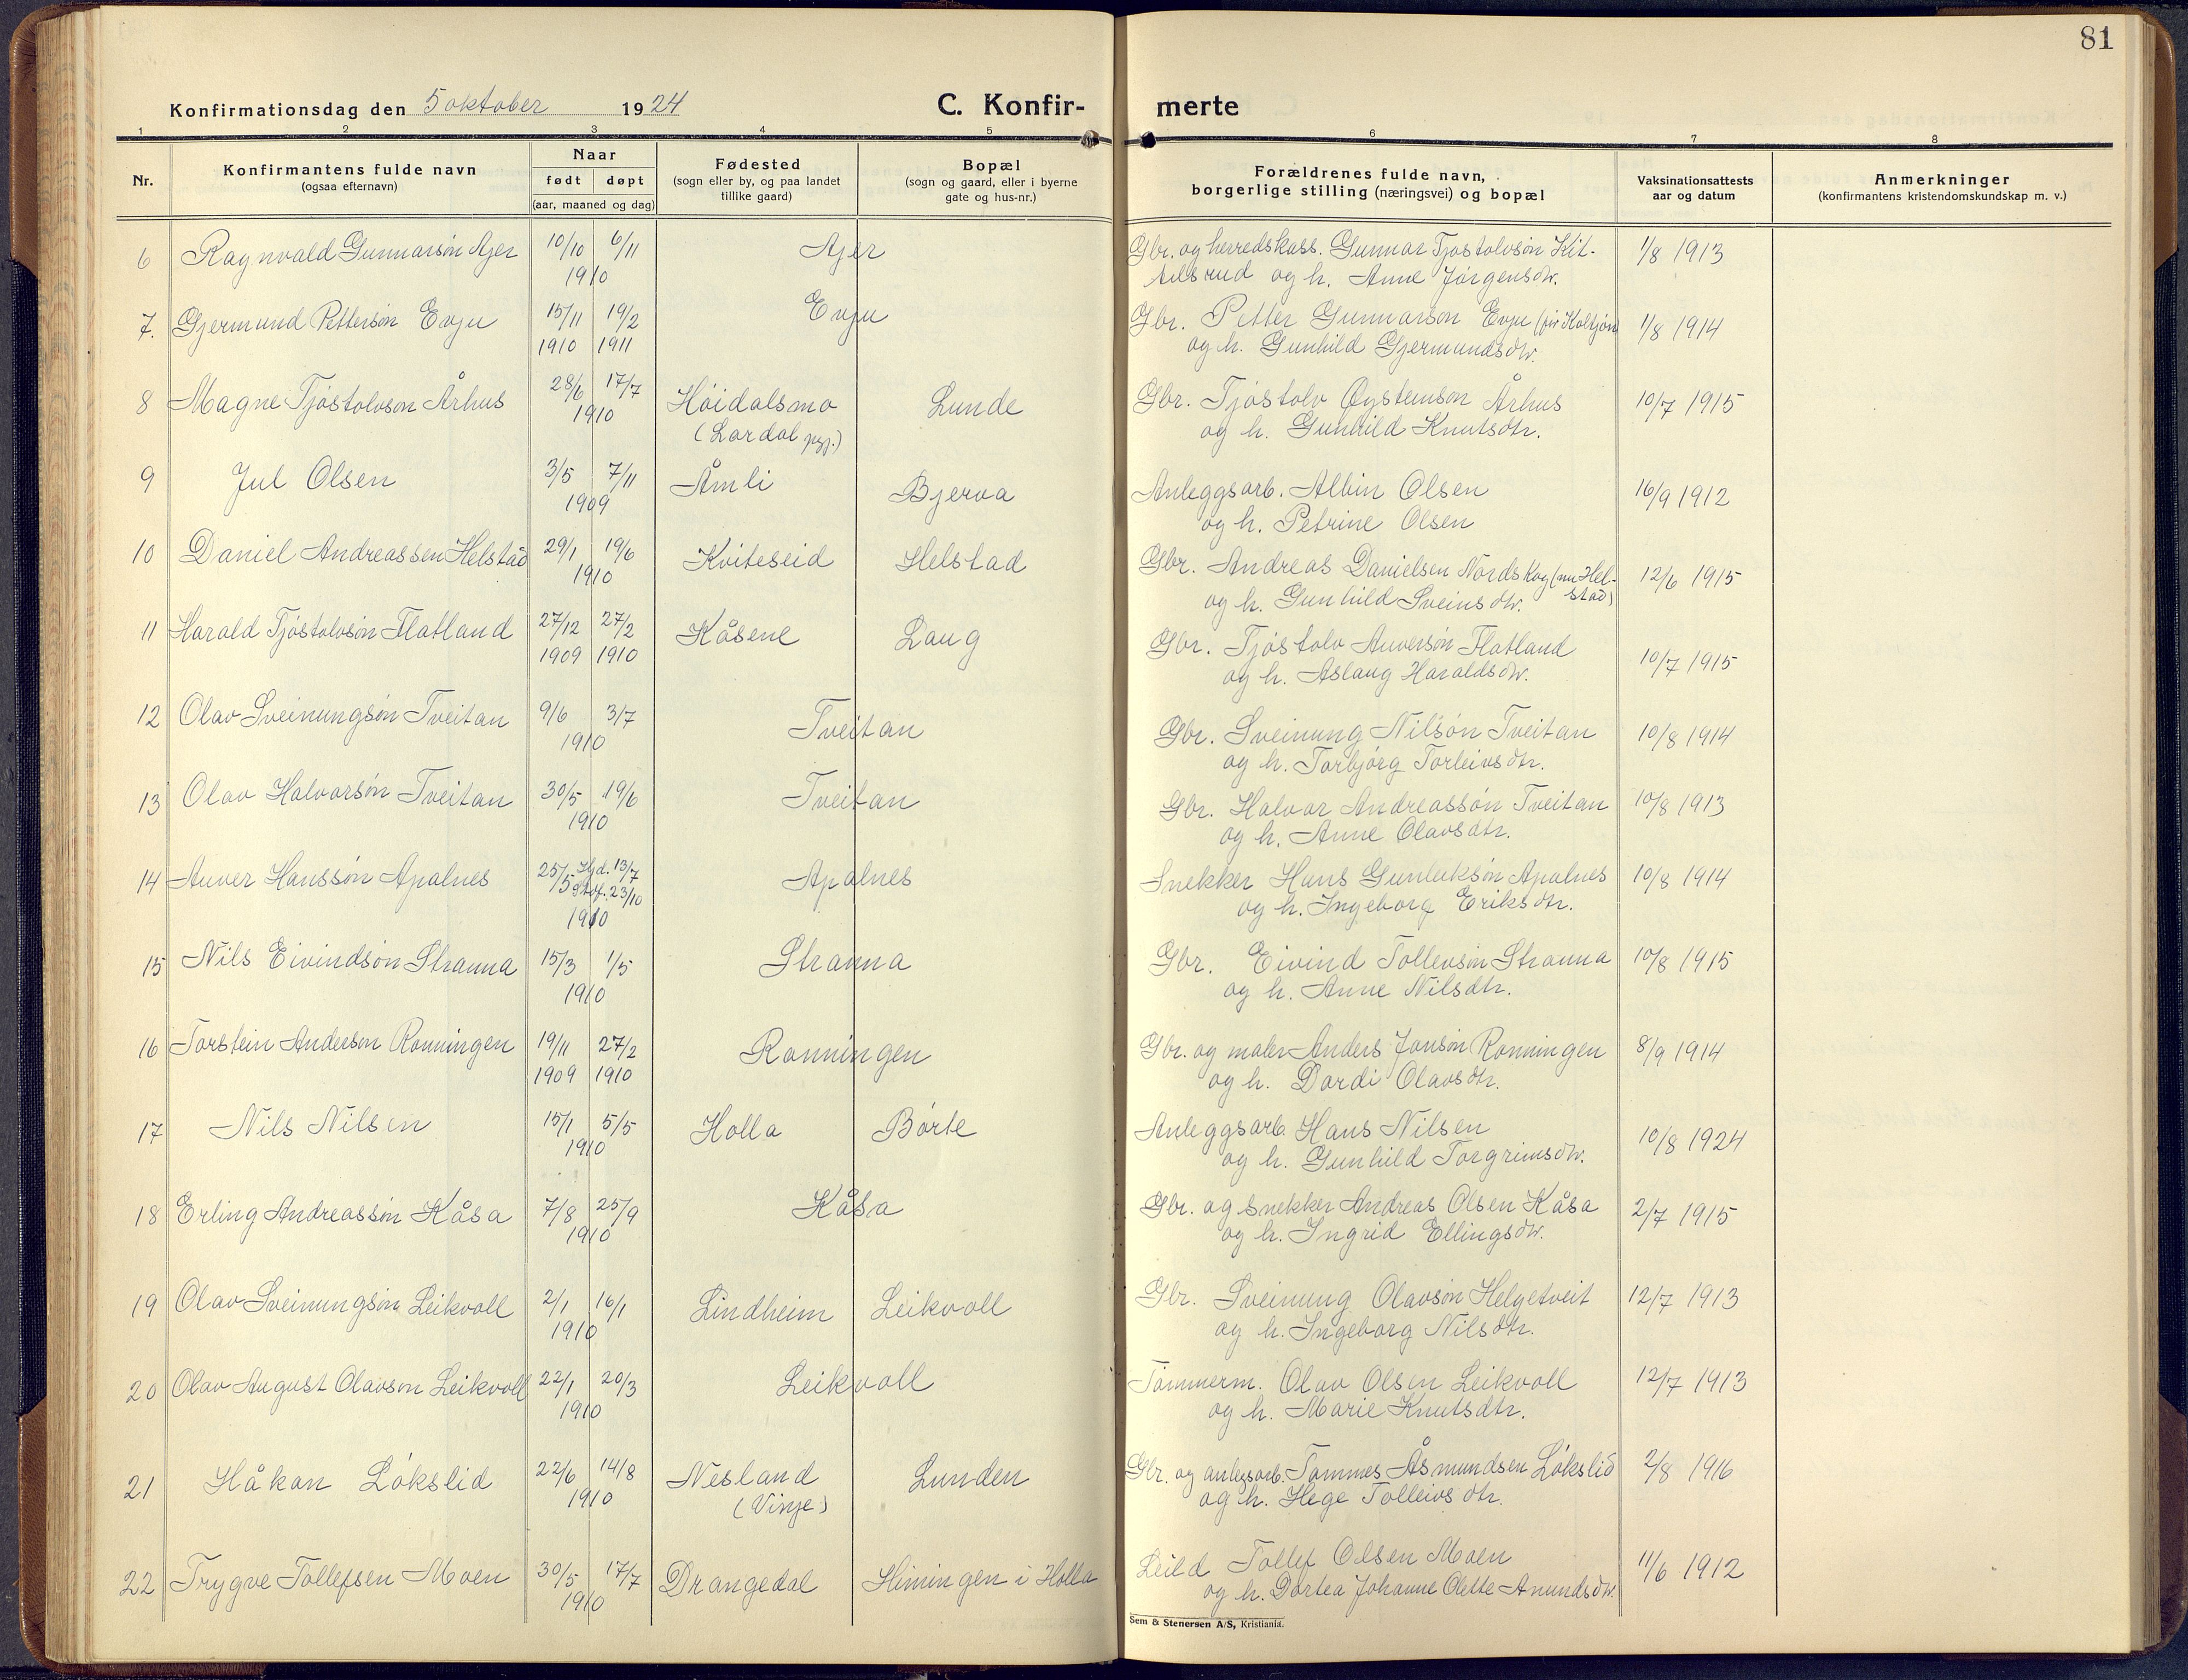 81
Konfirmationsdag den 5 oktober 1924
C. Konfir-
merte
1 2 3 4 5 6 7 8
Nr.
Konfirmantens fulde navn
(ogsaa efternavn)
Naar
født døpt
(aar, maaned og dag)
Fødested
(sogn eller by, og paa landet
tillike gaard)
Bopæl
(sogn og gaard, eller i byerne
gate og hus-nr.)
Forældrenes fulde navn,
borgerlige stilling (næringsvei) og bopæl
Vaksinationsattests
aar og datum
Anmerkninger
(konfirmantens kristendomskundskap m. v.)
6 Ragnvald Gunnarsón Ajer 10/10 6/11 Ajer Gbr. og herredskass. Gunnar Tjostolvsón Kit- 1/8 1913
1910 telsrud og h. Anne Jórgensdtr.
7. Gjermund Pettersón Evju 15/11 19/2 Evju Gbr. Petter Gunnarson Evju (før Holtjón) 1/8 1914
1910 1911 og h. Gunhild Gjermundsdtr.
8 Magne Tjóstolvson Århus 28/6 17/7 Hóidalsmo Lunde Gbr. Tjóstolv Øysteinson Århus 10/7 1915
1910 (Lardal pgj.) og h. Gunhild Knutsdtr.
9 Jul Olsen 3/5 7/11 Åmli Bjerva Anleggsarb. Albin Olsen 16/9 1912
1909 og h. Petrine Olsen
10 Daniel Andreassen Helstad 29/1 19/6 Kviteseid Helstad Gbr. Andreas Danielsen Nordskog (nu Hel- 12/6 1915
1910 og h. Gunhild Sveinsdtr. stad)
11 Harald Tjóstolvsón Flatland 27/12 27/2 Kåsene Laug Gbr. Tjóstolv Auversón Flatland 10/7 1915
1909 1910 og h. Aslaug Haraldsdtr.
12 Olav Sveinungsón Tveitan 9/6 3/7 Tveitan Gbr. Sveinung Nilsón Tveitan 10/8 1914
1910 og h. Torbjórg Torleivsdtr.
13 Olav Halvorsón Tveitan 30/5 19/6 Tveitan Gbr. Halvor Andreassón Tveitan 10/8 1913
1910 og h. Anne Olavsdtr.
14 Auver Hanssón Apalnes 25/5 Hjd. 13/7 Apalnes Snekker Hans Gunleiksón Apalnes 10/8 1914
23/10
1910 og h. Ingeborg Eriksdtr.
15 Nils Eivindsón Stranna 15/3 1/5 Stranna Gbr. Eivind Tollevsón Stranna 10/8 1915
1910 og h. Anne Nilsdtr.
16 Torstein Anderson Ronningen 19/11 27/2 Ronningen Gbr. og maler Anders Jonsón Ronningen 8/9 1914
1909 1910 og h. Dordi Olavsdtr.
17 Nils Nilsen 15/1 5/5 Holla Bórte Anleggsarb. Hans Nilsen 10/8 1924
1910 og h. Gunhild Torgrimsdtr.
18 Erling Andreassón Kåsa 7/8 25/9 Kåsa Gbr. og snekker Andreas Olsen Kåsa 2/7 1915
1910 og h. Ingrid Ellingsdtr.
19 Olav Sveinungsón Leikvoll 2/1 16/1 Lindheim Leikvoll Gbr. Sveinung Olavsón Helgetveit 12/7 1913
1910 og h. Ingeborg Nilsdtr.
20 Olav August Olavson Leikvoll 22/1 20/3 Leikvoll Tómmerm. Olav Olsen Leikvoll 12/7 1913
1910 og h. Marie Knutsdtr.
21 Håkon Lókslid 22/6 14/8 Nesland Lunden Gbr. og anlegsarb. Tommes Åsmundsen Lókslid 2/8 1916
1910 (Vinje) og h. Hege Tolleivsdtr.
22 Trygve Tollefsen Moen 30/5 17/7 Drangedal Himingen i Holla Leild Tollef Olsen Moen 11/6 1912
1910 og h. Dortea Johanne Olette Anundsdtr.
Sem & Stenersen A/S, Kristiania.